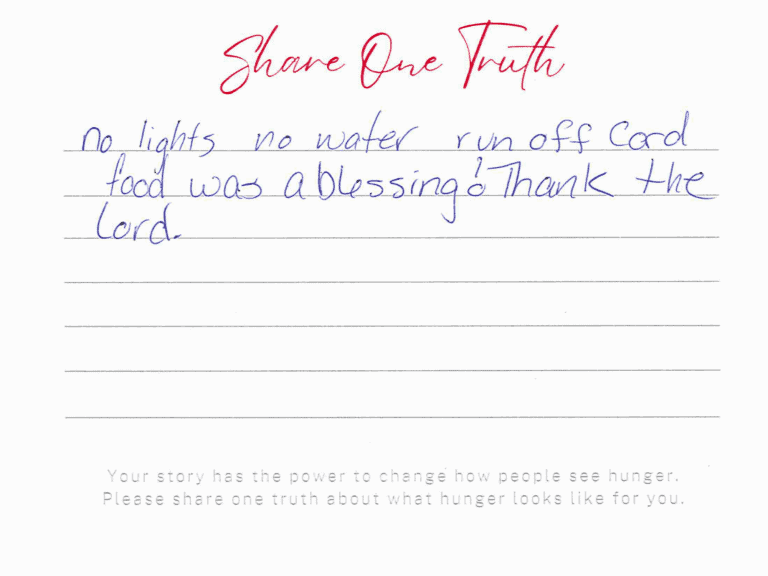 Share One Truth
no lights no water run off Cord
food was a blessing! Thank the
Lord.
Your story has the power to change how people see hunger.
Please share one truth about what hunger looks like for you.